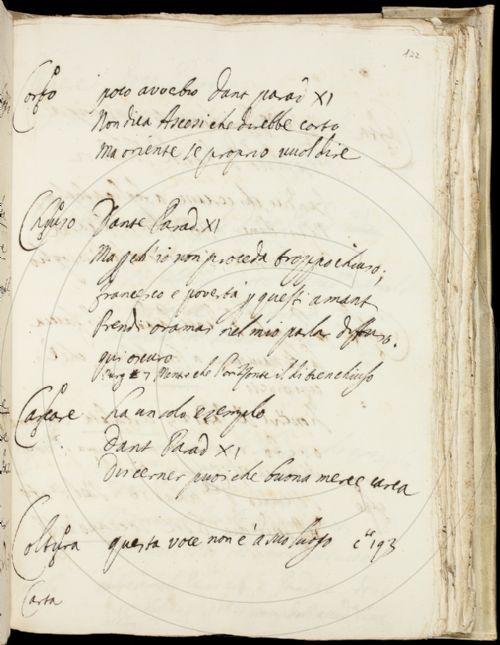 122
Corto poco avverbio Dant parad XI
Non dica Ascesi che direbbe corto
Ma oriente se proprio vuol dire
Chiuso Dante Parad XI
Ma perch'io non proceda troppo chiuso;
Francesco e povertà p questi amant
Prendi oramai nel mio parlar diffuso.
qui oscuro
Purg 7
Carcare ha un solo esempio
Dant Parad XI
Discerner puoi che buona merce carca
Coltura questa voce non è a suo luogo c 193
Carta